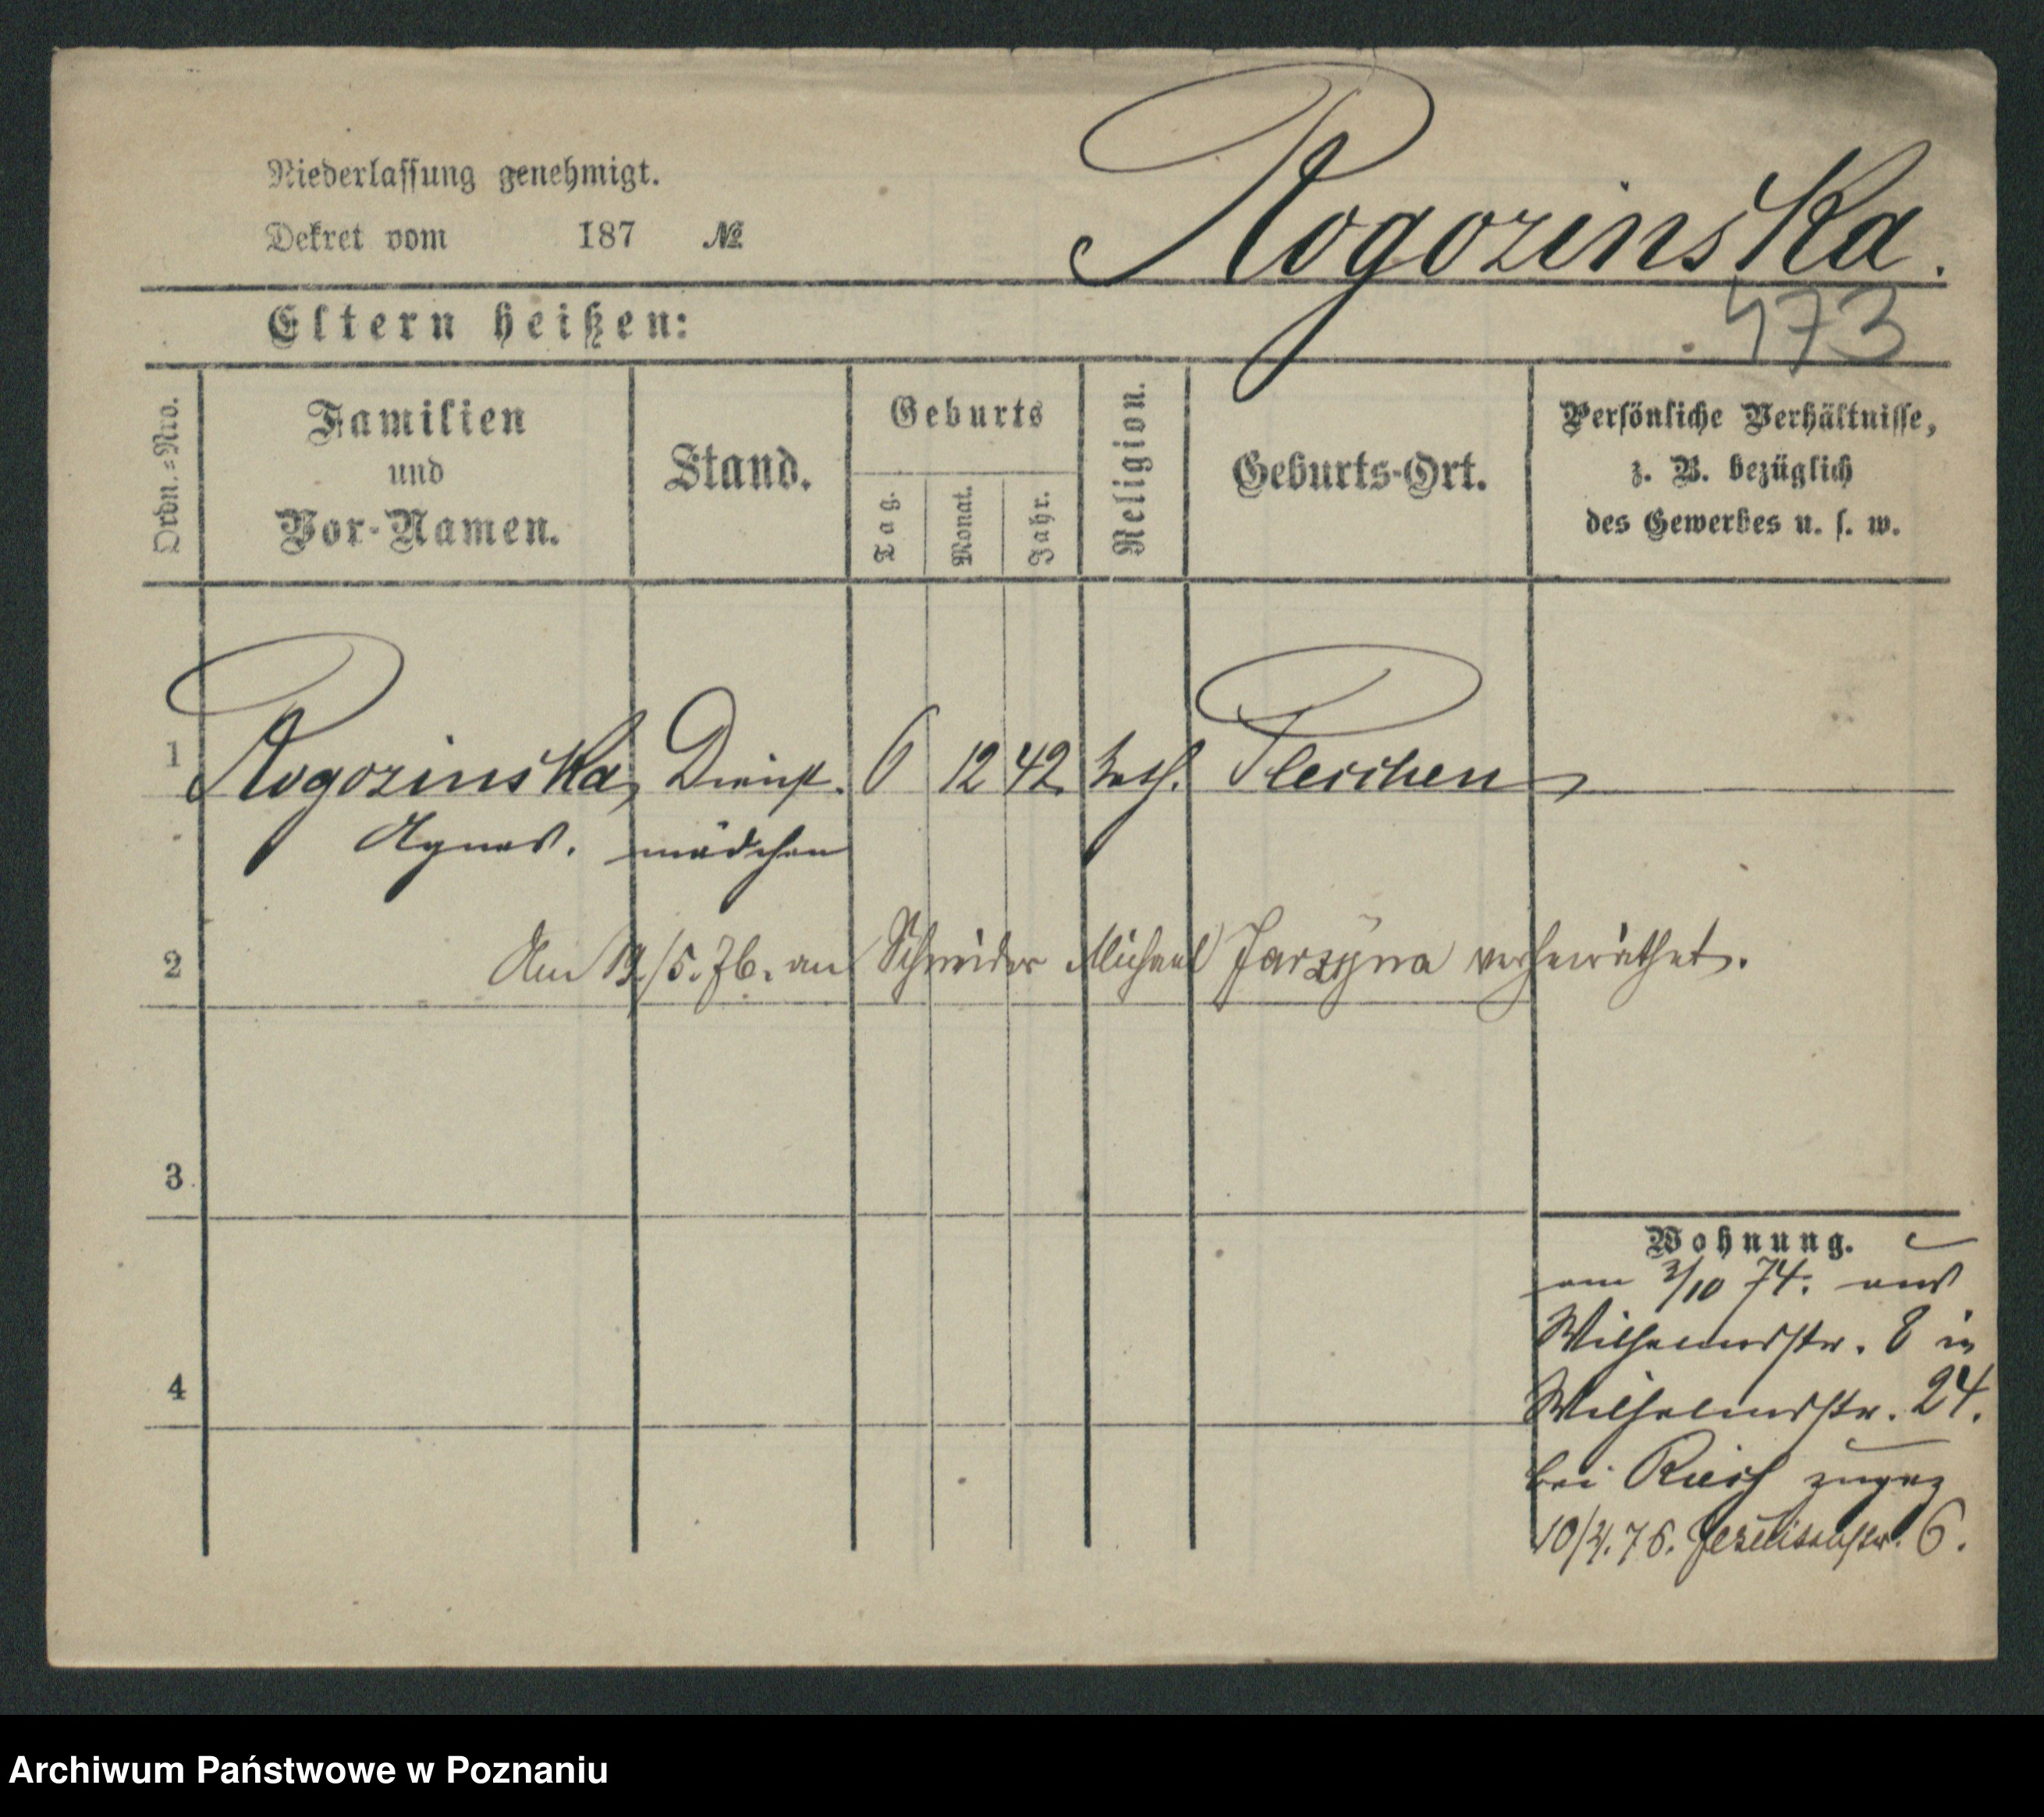 Niederlassung genehmigt.
Dekret vom 187 №
Rogozinska.
473
Eltern heißen:
Ordn.=Nro.
Familien
und
Vor-Namen.
Stand.
Geburts
Tag.
Monat.
Jahr.
Religion.
Geburts-Ort.
Persönliche Verhältnisse,
z. B. bezüglich
des Gewerbes u. s. w.
1 Rogozinska, Dienst. 6 12 42 kath. Pleschen
Agnes. mädchen
2 Am 19/5. 76. an Schneider Michael Jarzyna verheirathet.
3
4
Wohnung.
am 2/10 74. aus
Wilhelmsstr. 8 in
Wilhelmsstr. 24.
bei zugez
10/4. 76. 6.
Archiwum Państwowe w Poznaniu